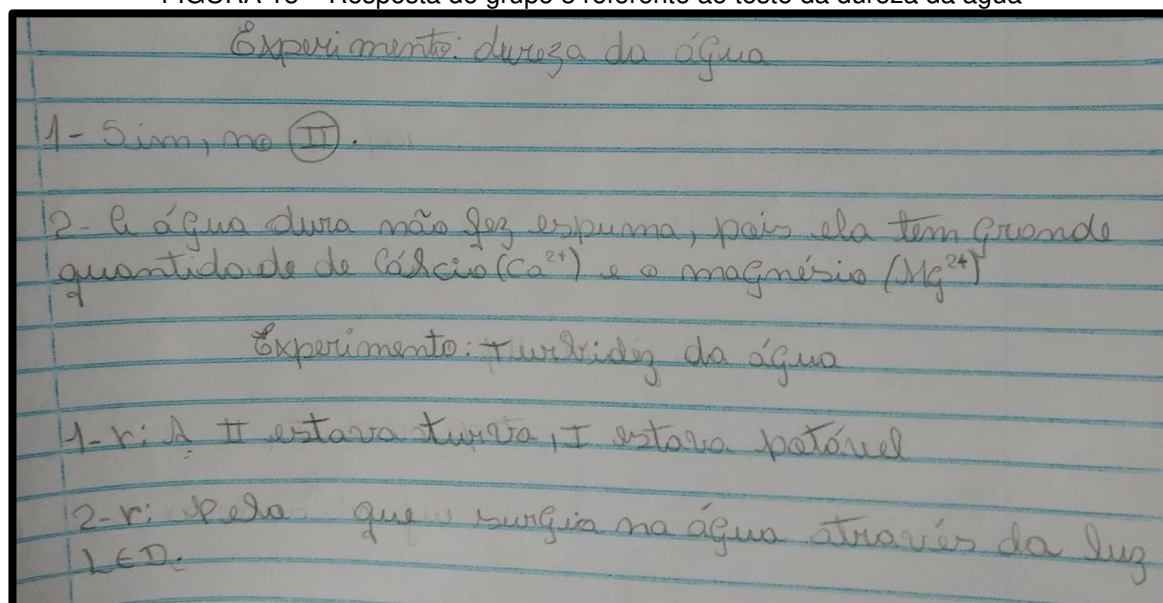 Experimento: dureza da água
1- Sim, no II.
2- A água dura não fez espuma, pois ela tem grande
quantidade de Cálcio (Ca²⁺) e o magnésio (Mg²⁺)
Experimento: Turbidez da água
1-r: A II estava turva, I estava potável
2-r: Pela que surgia na água através da luz
LED.